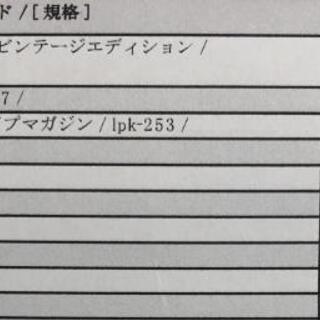 ド/[規格]
ビンテージエディション/
7/
プマガジン/lpk-253/